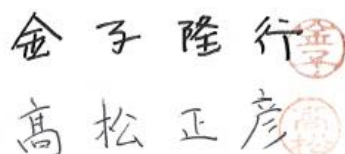 金子隆行 金子
髙松正彦 高松